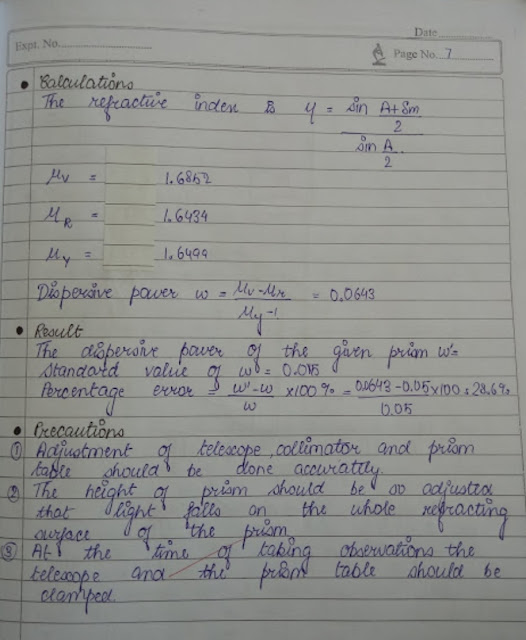 Date
Expt. No.
Page No. 7
• Calculations
The refractive index is y = sin A+δm / 2
sin A / 2
μv = 1.6852
μR = 1.6434
μy = 1.6499
Dispersive power w = μv-μr / μy-1 = 0.0643
• Result
The dispersive power of the given prism w'=
standard value of w = 0.05
Percentage error = w'-w / w ×100% = 0.0643-0.05×100 = 28.6%
0.05
• Precautions
① Adjustment of telescope, collimator and prism
table should be done accurately.
② The height of prism should be so adjusted
that light falls on the whole refracting
surface of the prism
③ At the time of taking observations the
telescope and the prism table should be
clamped.